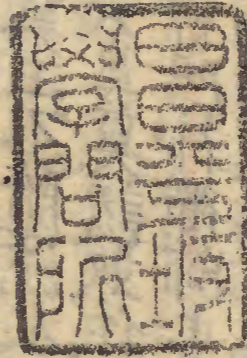 昌平坂
學問所